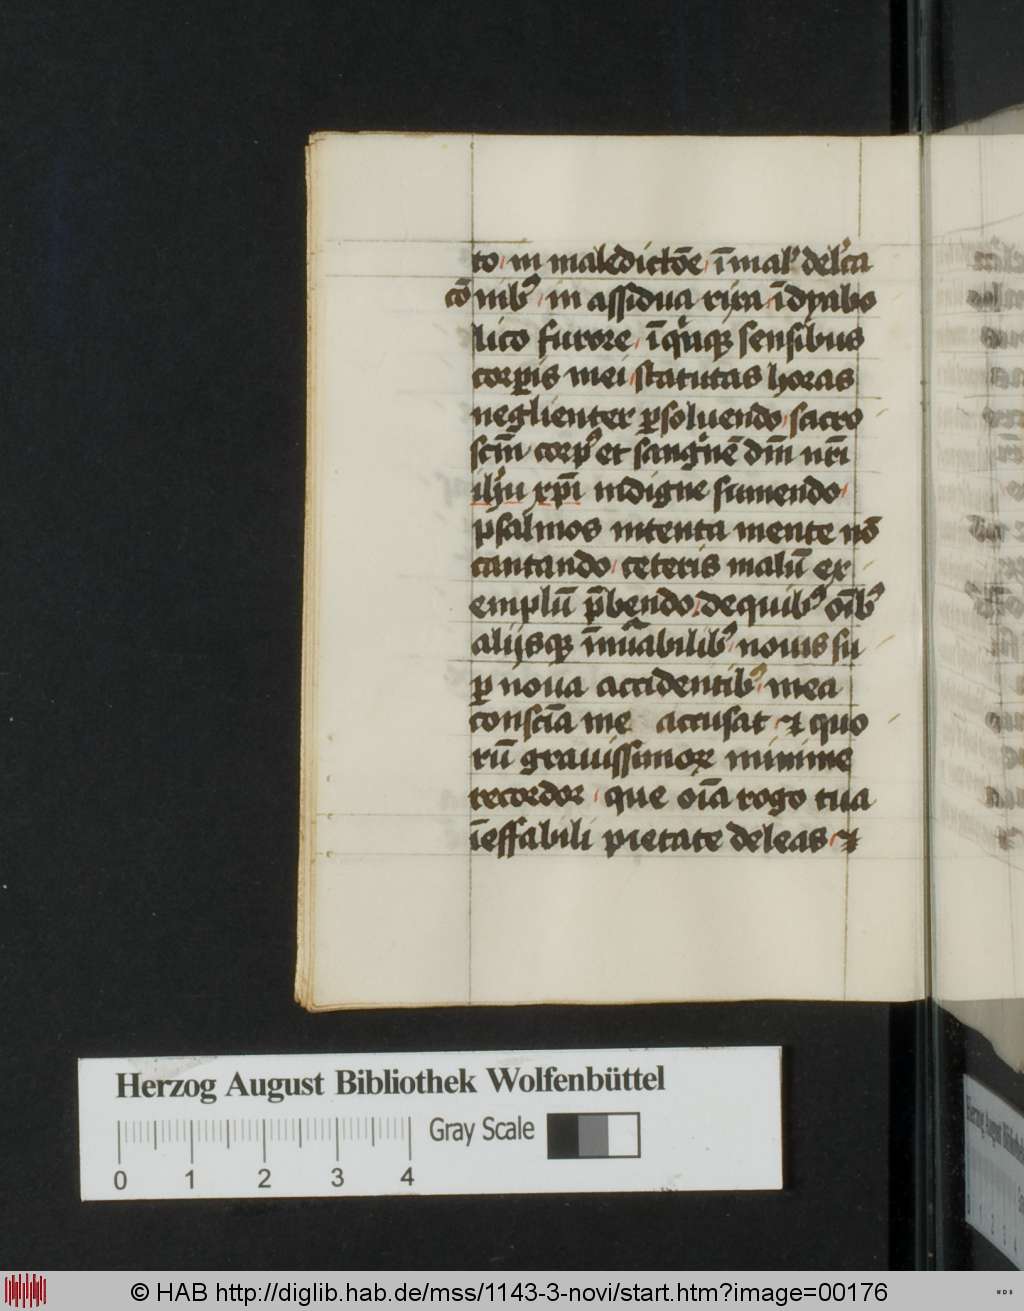 to in maledictōe ī mal' delc̄ta
cōnibꝰ in assidua rixa ī dyabo
lico furore ī quīqꝫ sensibus
corꝑis mei statutas horas
neglienter ꝑsoluendo sacro
scm̄ corpꝰ et sanguinē dn̄i nr̄i
ih̄u xp̄i indigne sumendo
psalmos intenta mente nō
cantando ceteris malū ex
emplū p̄bendo de quibꝰ oībꝰ
alijsqꝫ īnūabilibꝰ nouis su
ꝑ noua accidentibꝰ mea
consciā me accusat et quo
rū grauissimoꝝ minime
recordor que oīa rogo tua
īeffabili pietate deleas et
Herzog August Bibliothek Wolfenbüttel
Gray Scale
0 1 2 3 4
© HAB http://diglib.hab.de/mss/1143-3-novi/start.htm?image=00176